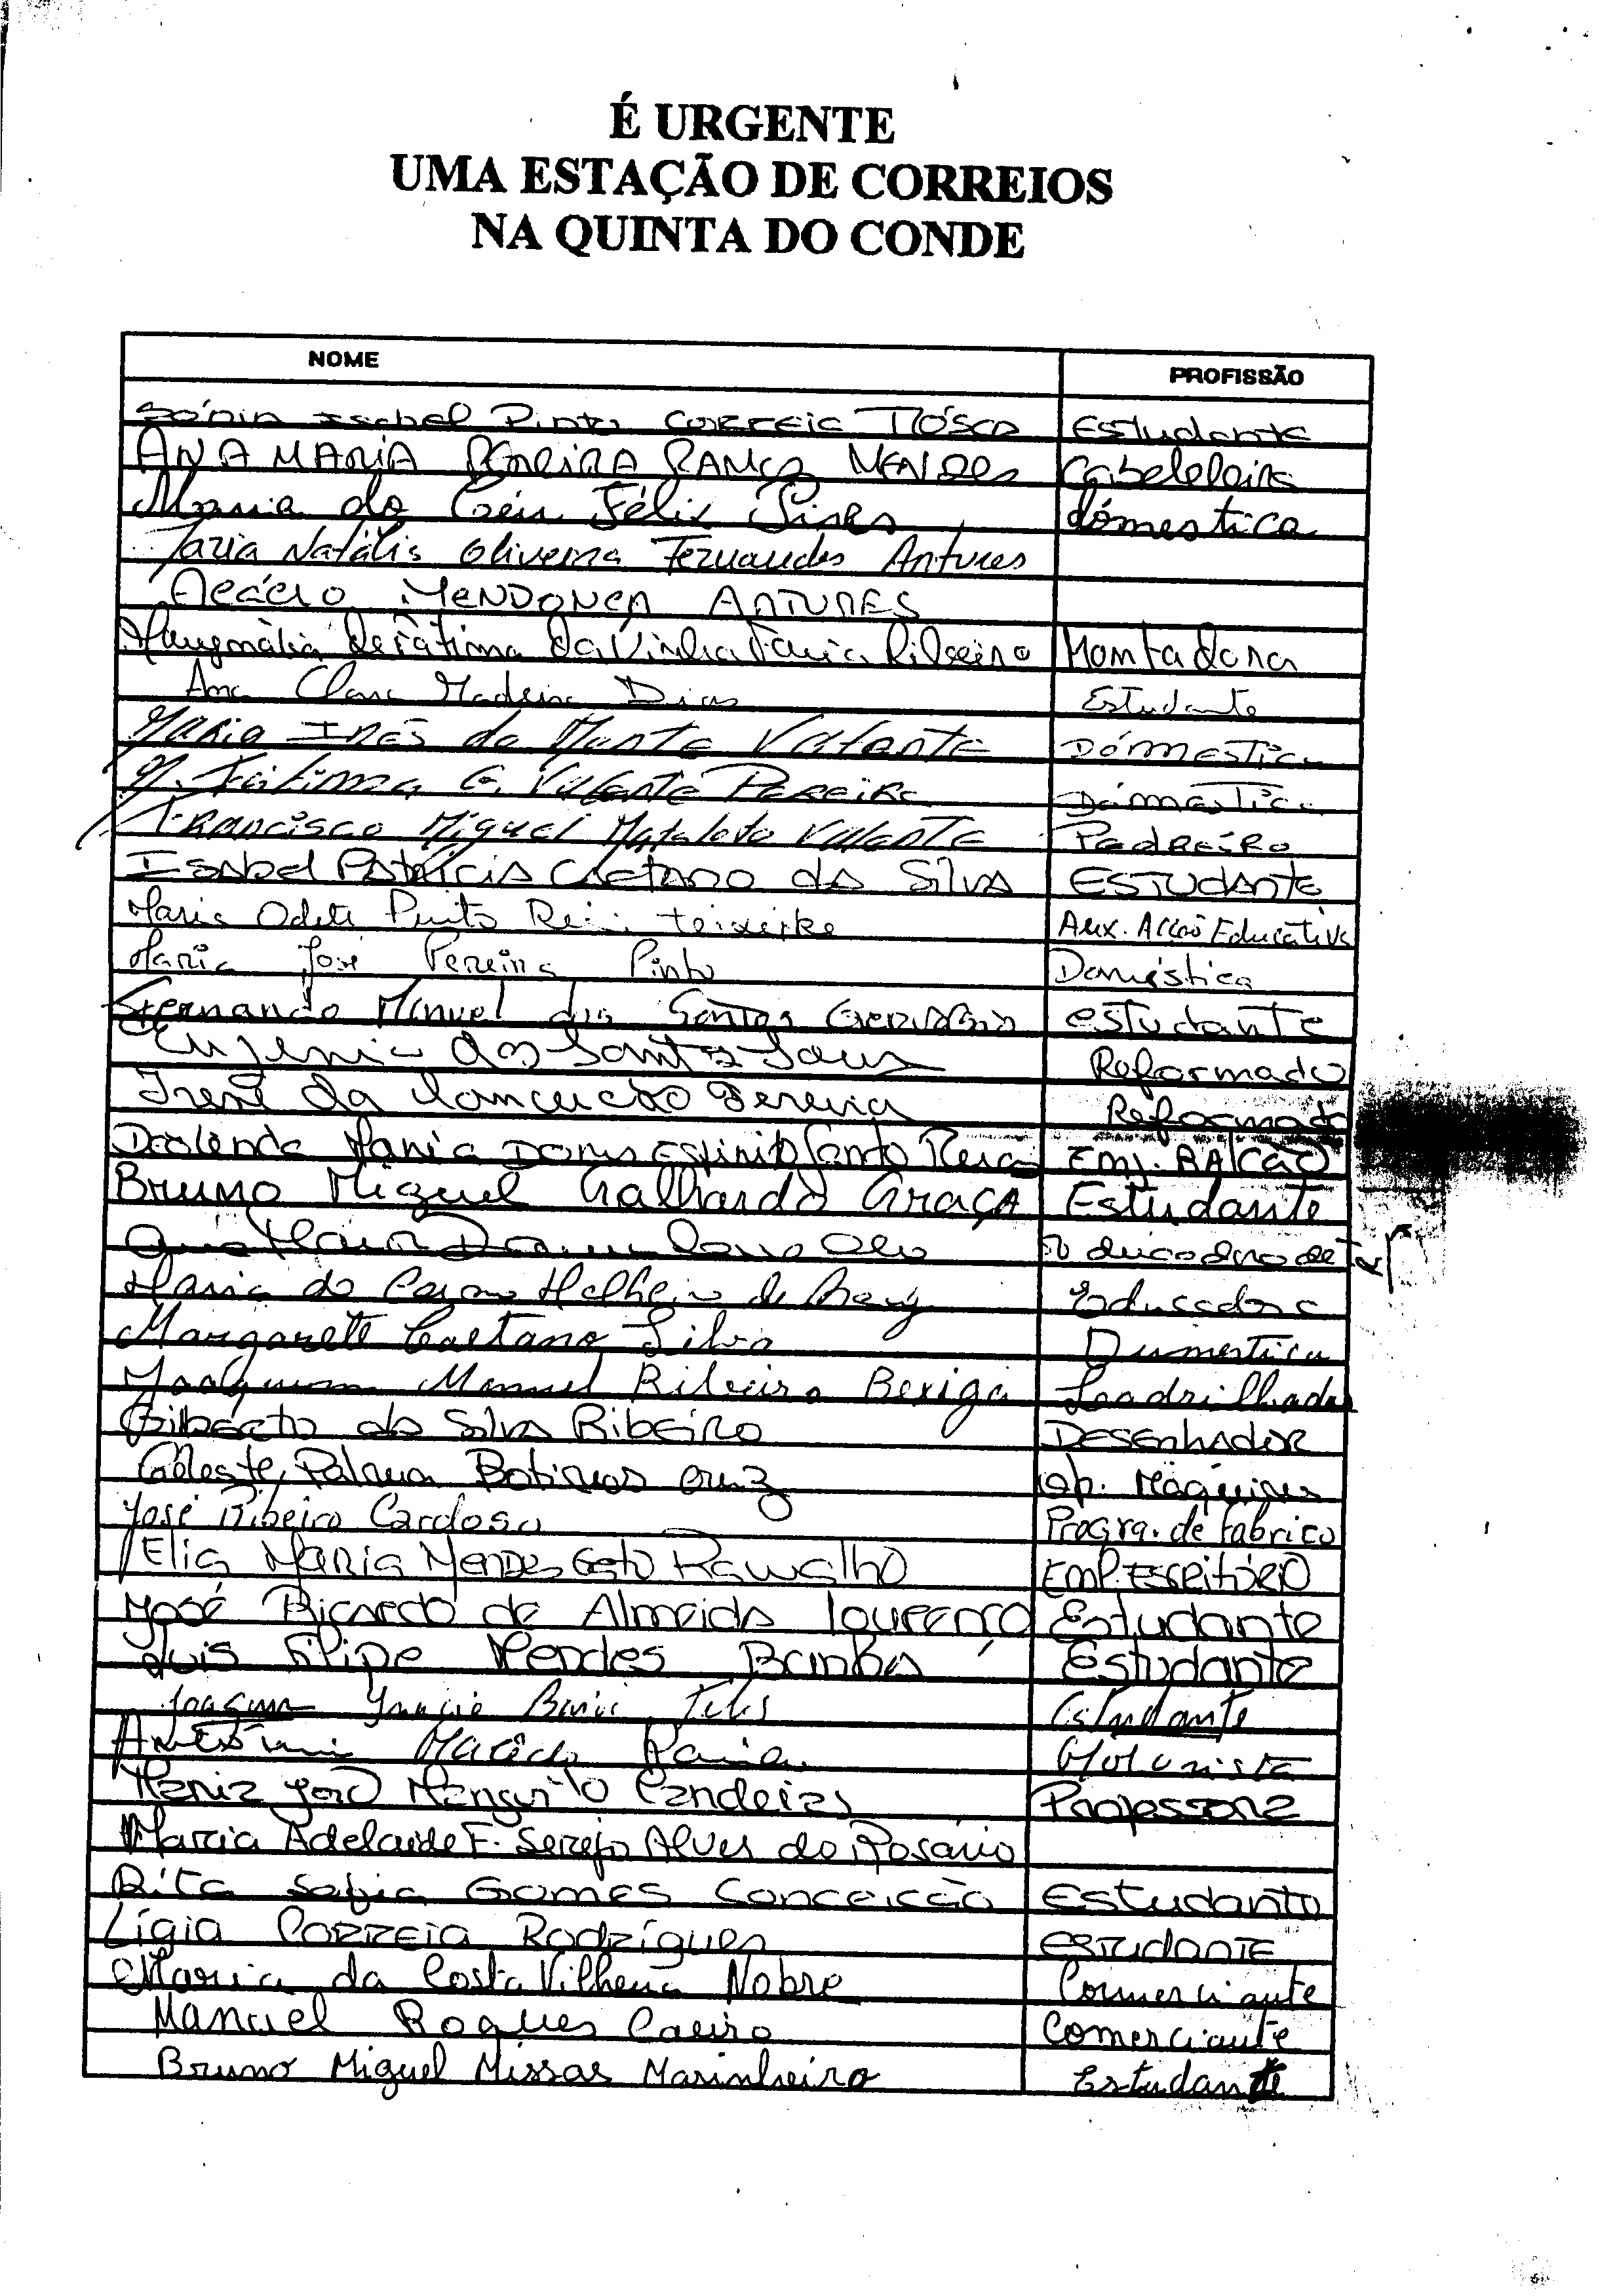 É URGENTE
UMA ESTAÇÃO DE CORREIOS
NA QUINTA DO CONDE
NOME PROFISSÃO
Sónia Isabel Pinto Correia Tôsca Estudante
ANA MARIA PEREIRA RAMOS MENDES Cabeleleira
Maria do Céu Félix Pires dómestica
Maria Natália Oliveira Fernandes Antunes
Acácio MENDONÇA ANTUNES
de Fátima da Vinha Faria Ribeiro Montadora
Ana Clara Madeira Dias Estudante
Maria Inês do Monte Valante Dómestica
M. Fátima G. Valante Pereira Dómestica
Francisco Miguel Mataloto Valante Pedreiro
Isabel Patrícia Caetano da Silva ESTUDANTE
Maria Odete Pinto Teixeira Aux. Acção Educativa
Maria José Pereira Pinto Doméstica
Fernando Manuel dos Santos estudante
dos Santos Reformado
Irene da Conceicão Pereira Reformado
Maria Espirito Santo Emp. BAlCão
Bruno Miguel Galhardo Graça Estudante
Educadora de
Maria do Malheiro de Educadora
Margarete Caetano Silva Dumestica
Joaquim Manuel Ribeiro Bexiga Ladrilhador
Gilberto da Silva Ribeiro DESENHADOR
Celeste Palma Botinas Cruz Op. Máquinas
José Ribeiro Cardoso Progra. de fabrico
Elia Maria Mendes Gato Ramalho Emp. Escritório
José Ricardo de Almeida Lourenço Estudante
Luis Filipe Mendes Banha Estudante
Joaquim Inácio Teles Estudante
Macedo Motorista
Maria João Mangorito Candeias Professora
Maria Adelaide F. Serejo Alves do Rosário
Rita Sofia Gomes Conceicão Estudante
Lígia Correia Rodrígues ESTUDANTE
Maria da Costa Vilhena Nobre Comerciante
Manuel Roques Caeiro Comerciante
Bruno Miguel Missas Marinheiro Estudante